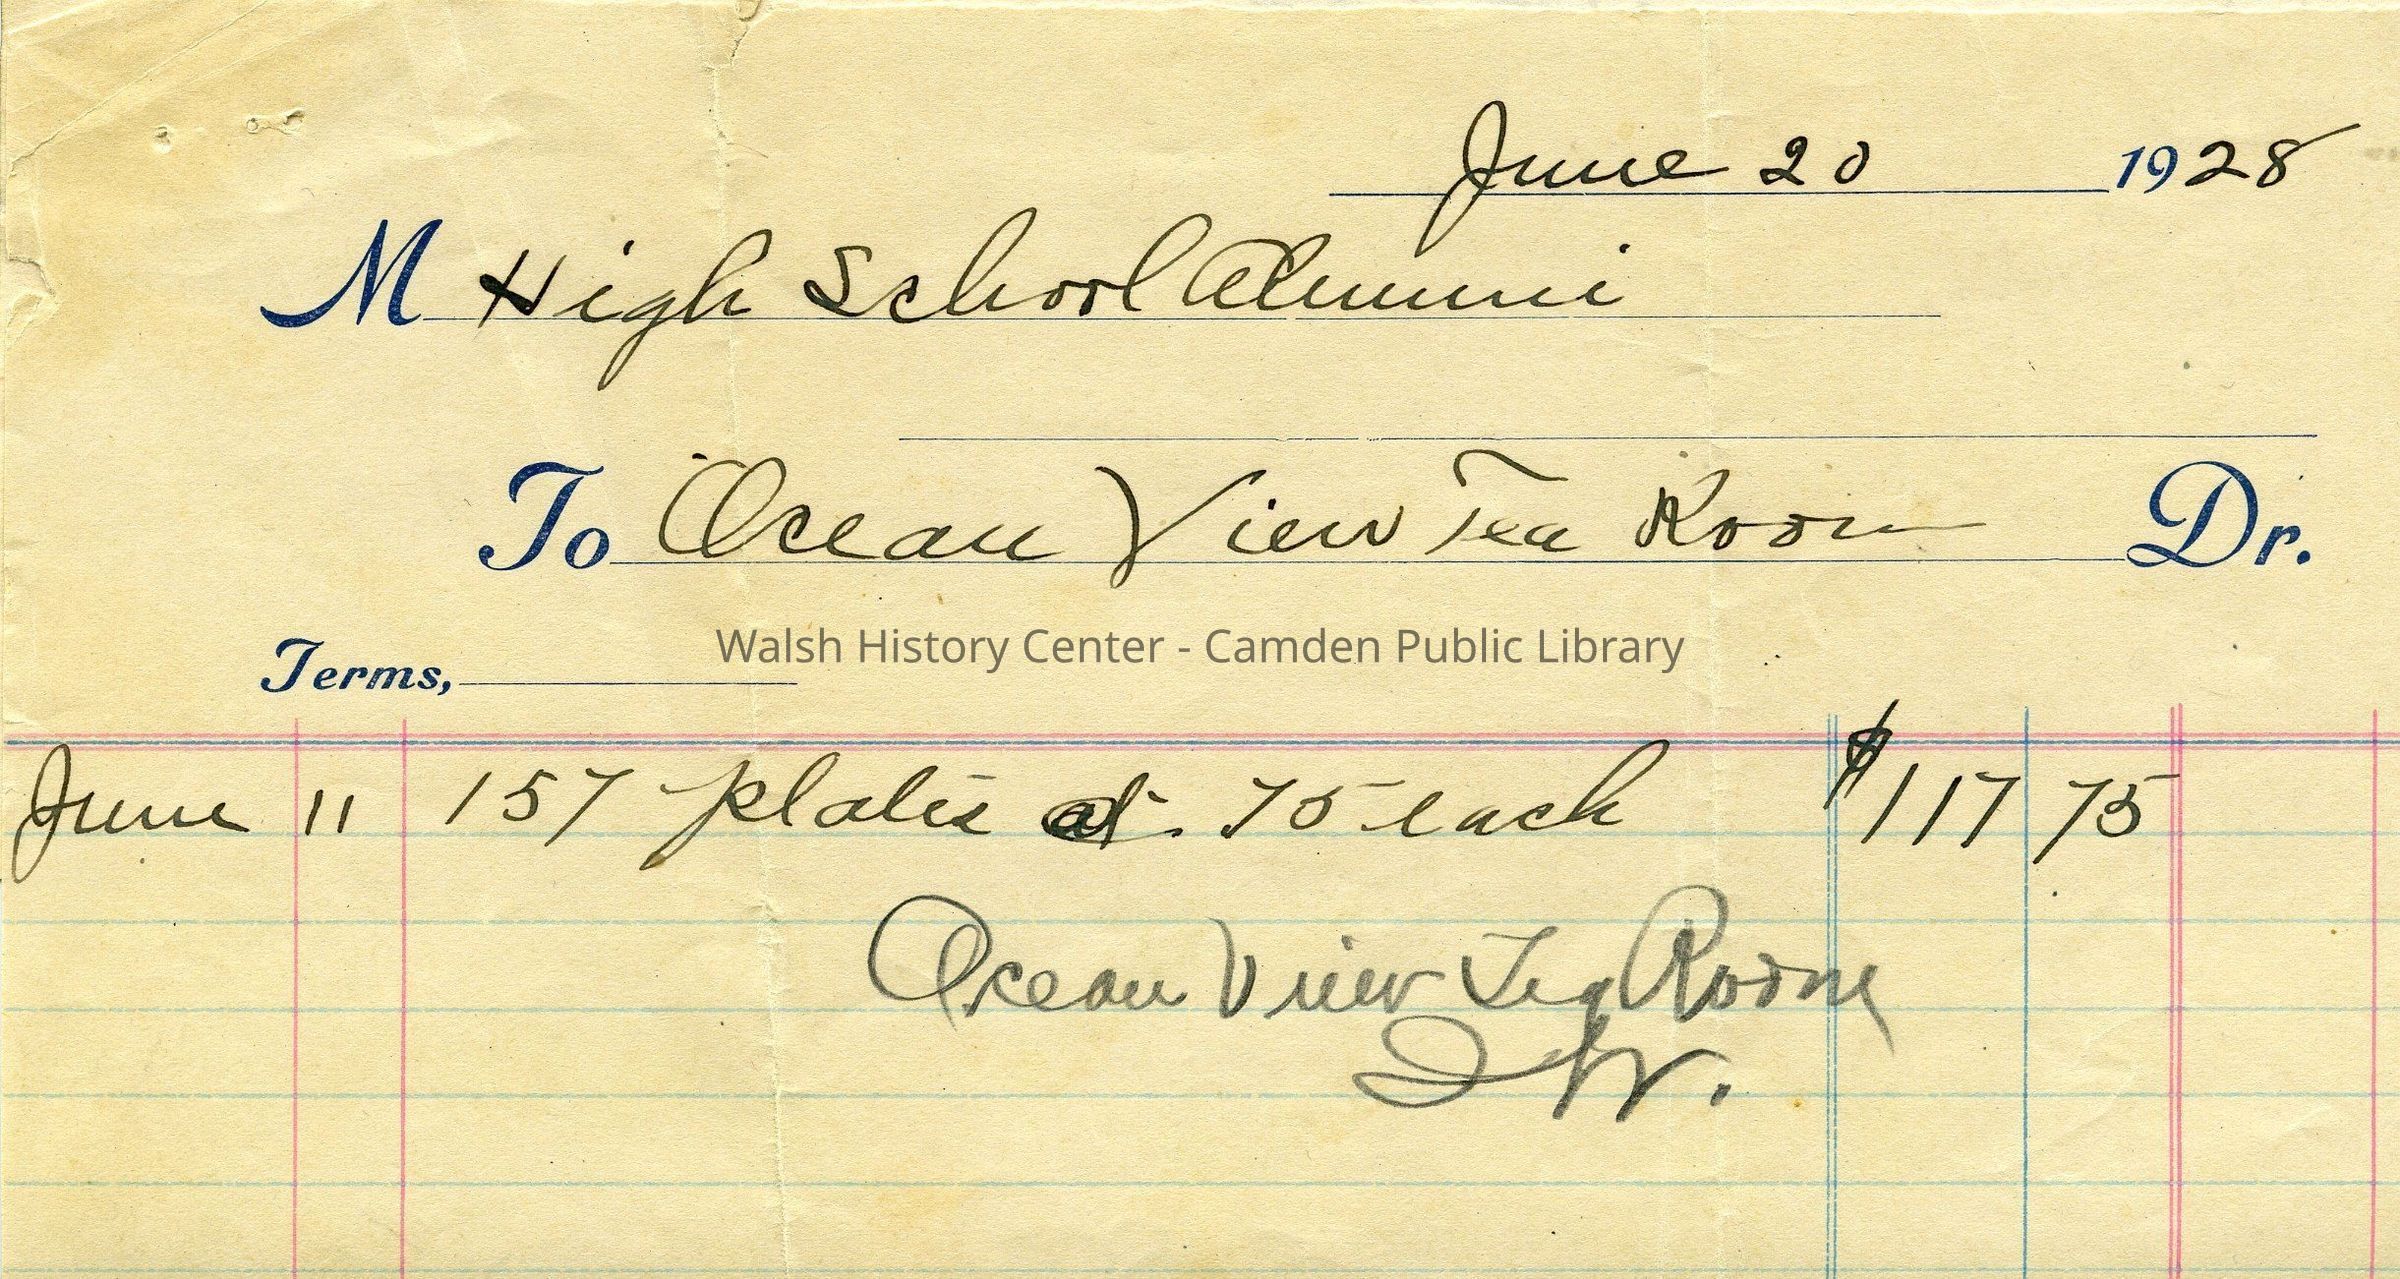 June 20 1928
M High School Alumni
To Ocean View Tea Room Dr.
Walsh History Center - Camden Public Library
Terms,
June 11 157 plates at .75 each $117 75
Ocean View Tea Room